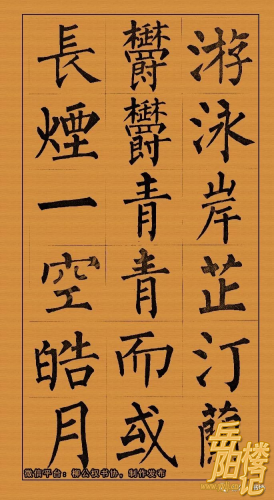 游泳岸芷汀蘭
鬱鬱青青而或
長煙一空皓月
微信平台：柳公权书协，制作发布
岳阳楼记